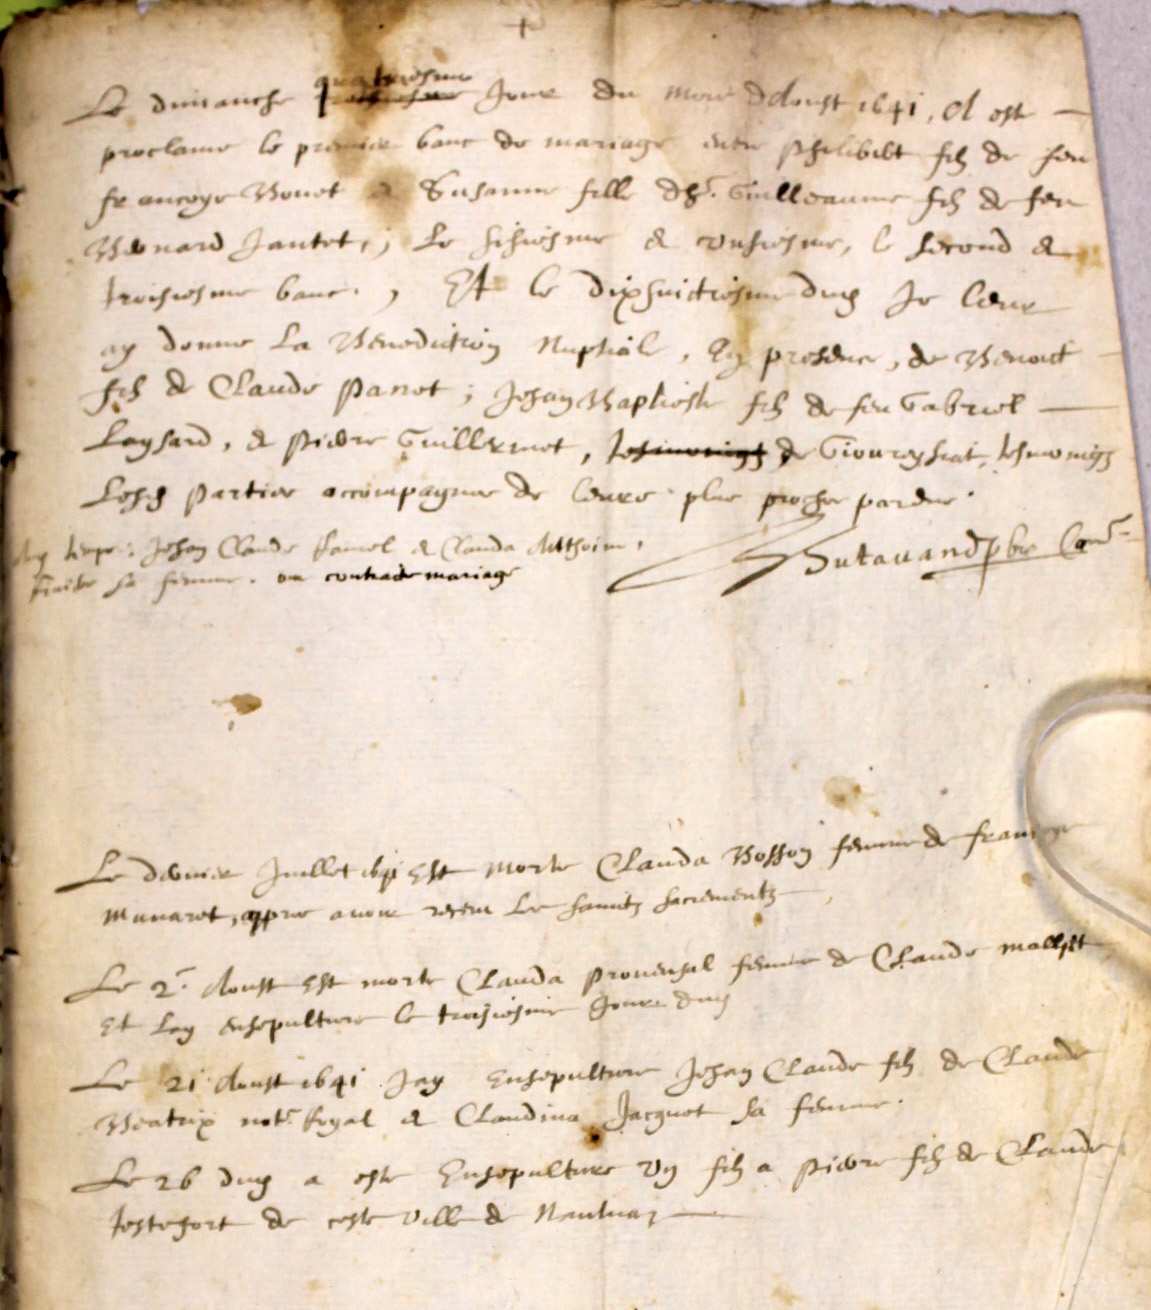 quatriesme
Le dimanche jour du mois d'Aoust 1641, A este
proclame le premier banc de mariage entre Philibert fils de feu
francoys Bouet et Susanne fille d'h.r Guilleaume fils de feu
Benard Jantet,, Le sisiesme et onsiesme, le second et
troisiesme banc., Et le dixhuictiesme dud je leur
ay donne La Benediction Nuptiale, En presence, de Benoict
fils de Claude Panet; Jehan Baptiste fils de feu Gabriel
Laysard, et Pierre Guillermet, tesmoingz de tesmoingz
Lesd parties accompagnes de leurs plus proches parens.
Jehan Claude et Clauda
sa femme. ou contracte mariage
Butavand pbre Cure
Le dernier Juillet 1641 Est morte Clauda Bosson femme de francoys
Munaret, appres avoir receu Le saintz sacrementz
Le 2.e Aoust Est morte Clauda Provensal femme de Claude
Et Lay ensepulture le troisiesme Jour dud
Le 21 Aoust 1641 Jay Ensepulture Jehan Claude fils de Claude
Beatrix not.e Royal et Claudina Jacquet sa femme.
Le 26 dud a este Ensepulture un fils a Pierre fils de Claude
Testefort de ceste ville de Nantua